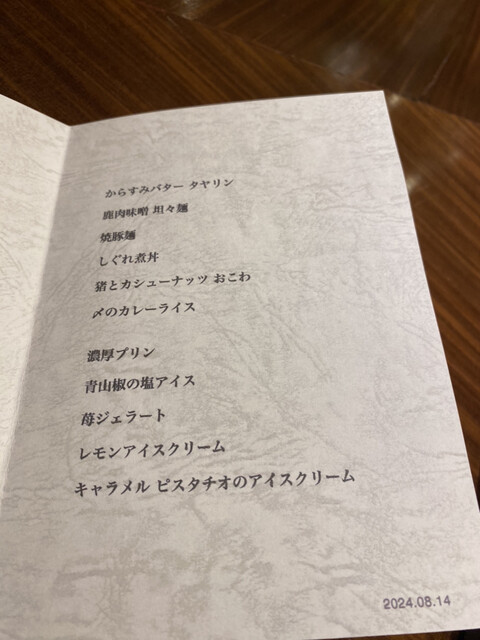 からすみバター タヤリン
鹿肉味噌 坦々麺
焼豚麺
しぐれ煮丼
猪とカシューナッツ おこわ
〆のカレーライス
濃厚プリン
青山椒の塩アイス
苺ジェラート
レモンアイスクリーム
キャラメル ピスタチオのアイスクリーム
2024.08.14